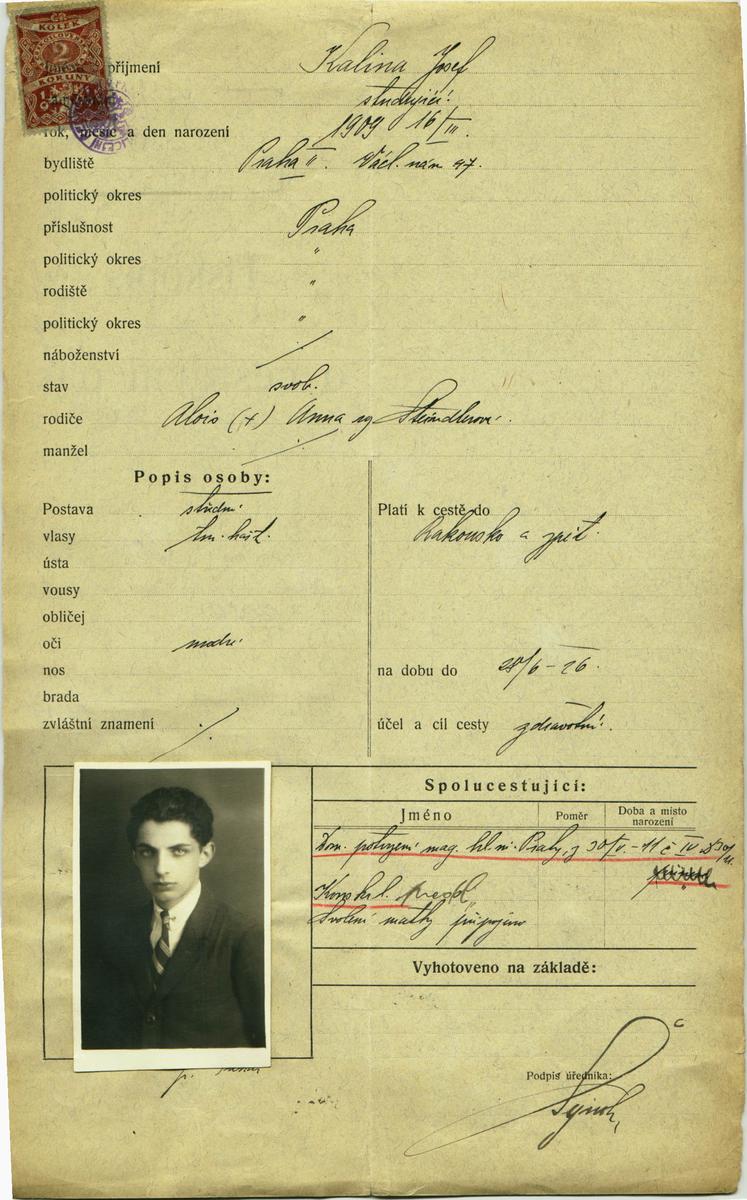 KOLEK
2
KORUNY
příjmení Kalina Josef
studující
rok, měsíc a den narození 1909 16/III.
bydliště Praha II. Václ. nám 47.
politický okres
příslušnost Praha
politický okres "
rodiště "
politický okres "
náboženství /
stav svob.
rodiče Alois (+) Anna
manžel /
Popis osoby:
Postava střední
vlasy tm. kašt.
ústa
vousy
obličej
oči modré
nos
brada
zvláštní znamení /
Platí k cestě do
Rakouska a zpět.
na dobu do 28/6 – 26.
účel a cíl cesty zdravotní.
Spolucestující:
Jméno Poměr Doba a místo narození
Dom. potvrzení mag. hl. m. Prahy, z 30/V. – 11 č IV.
Svolení matky připojeno
Vyhotoveno na základě:
Podpis úředníka: